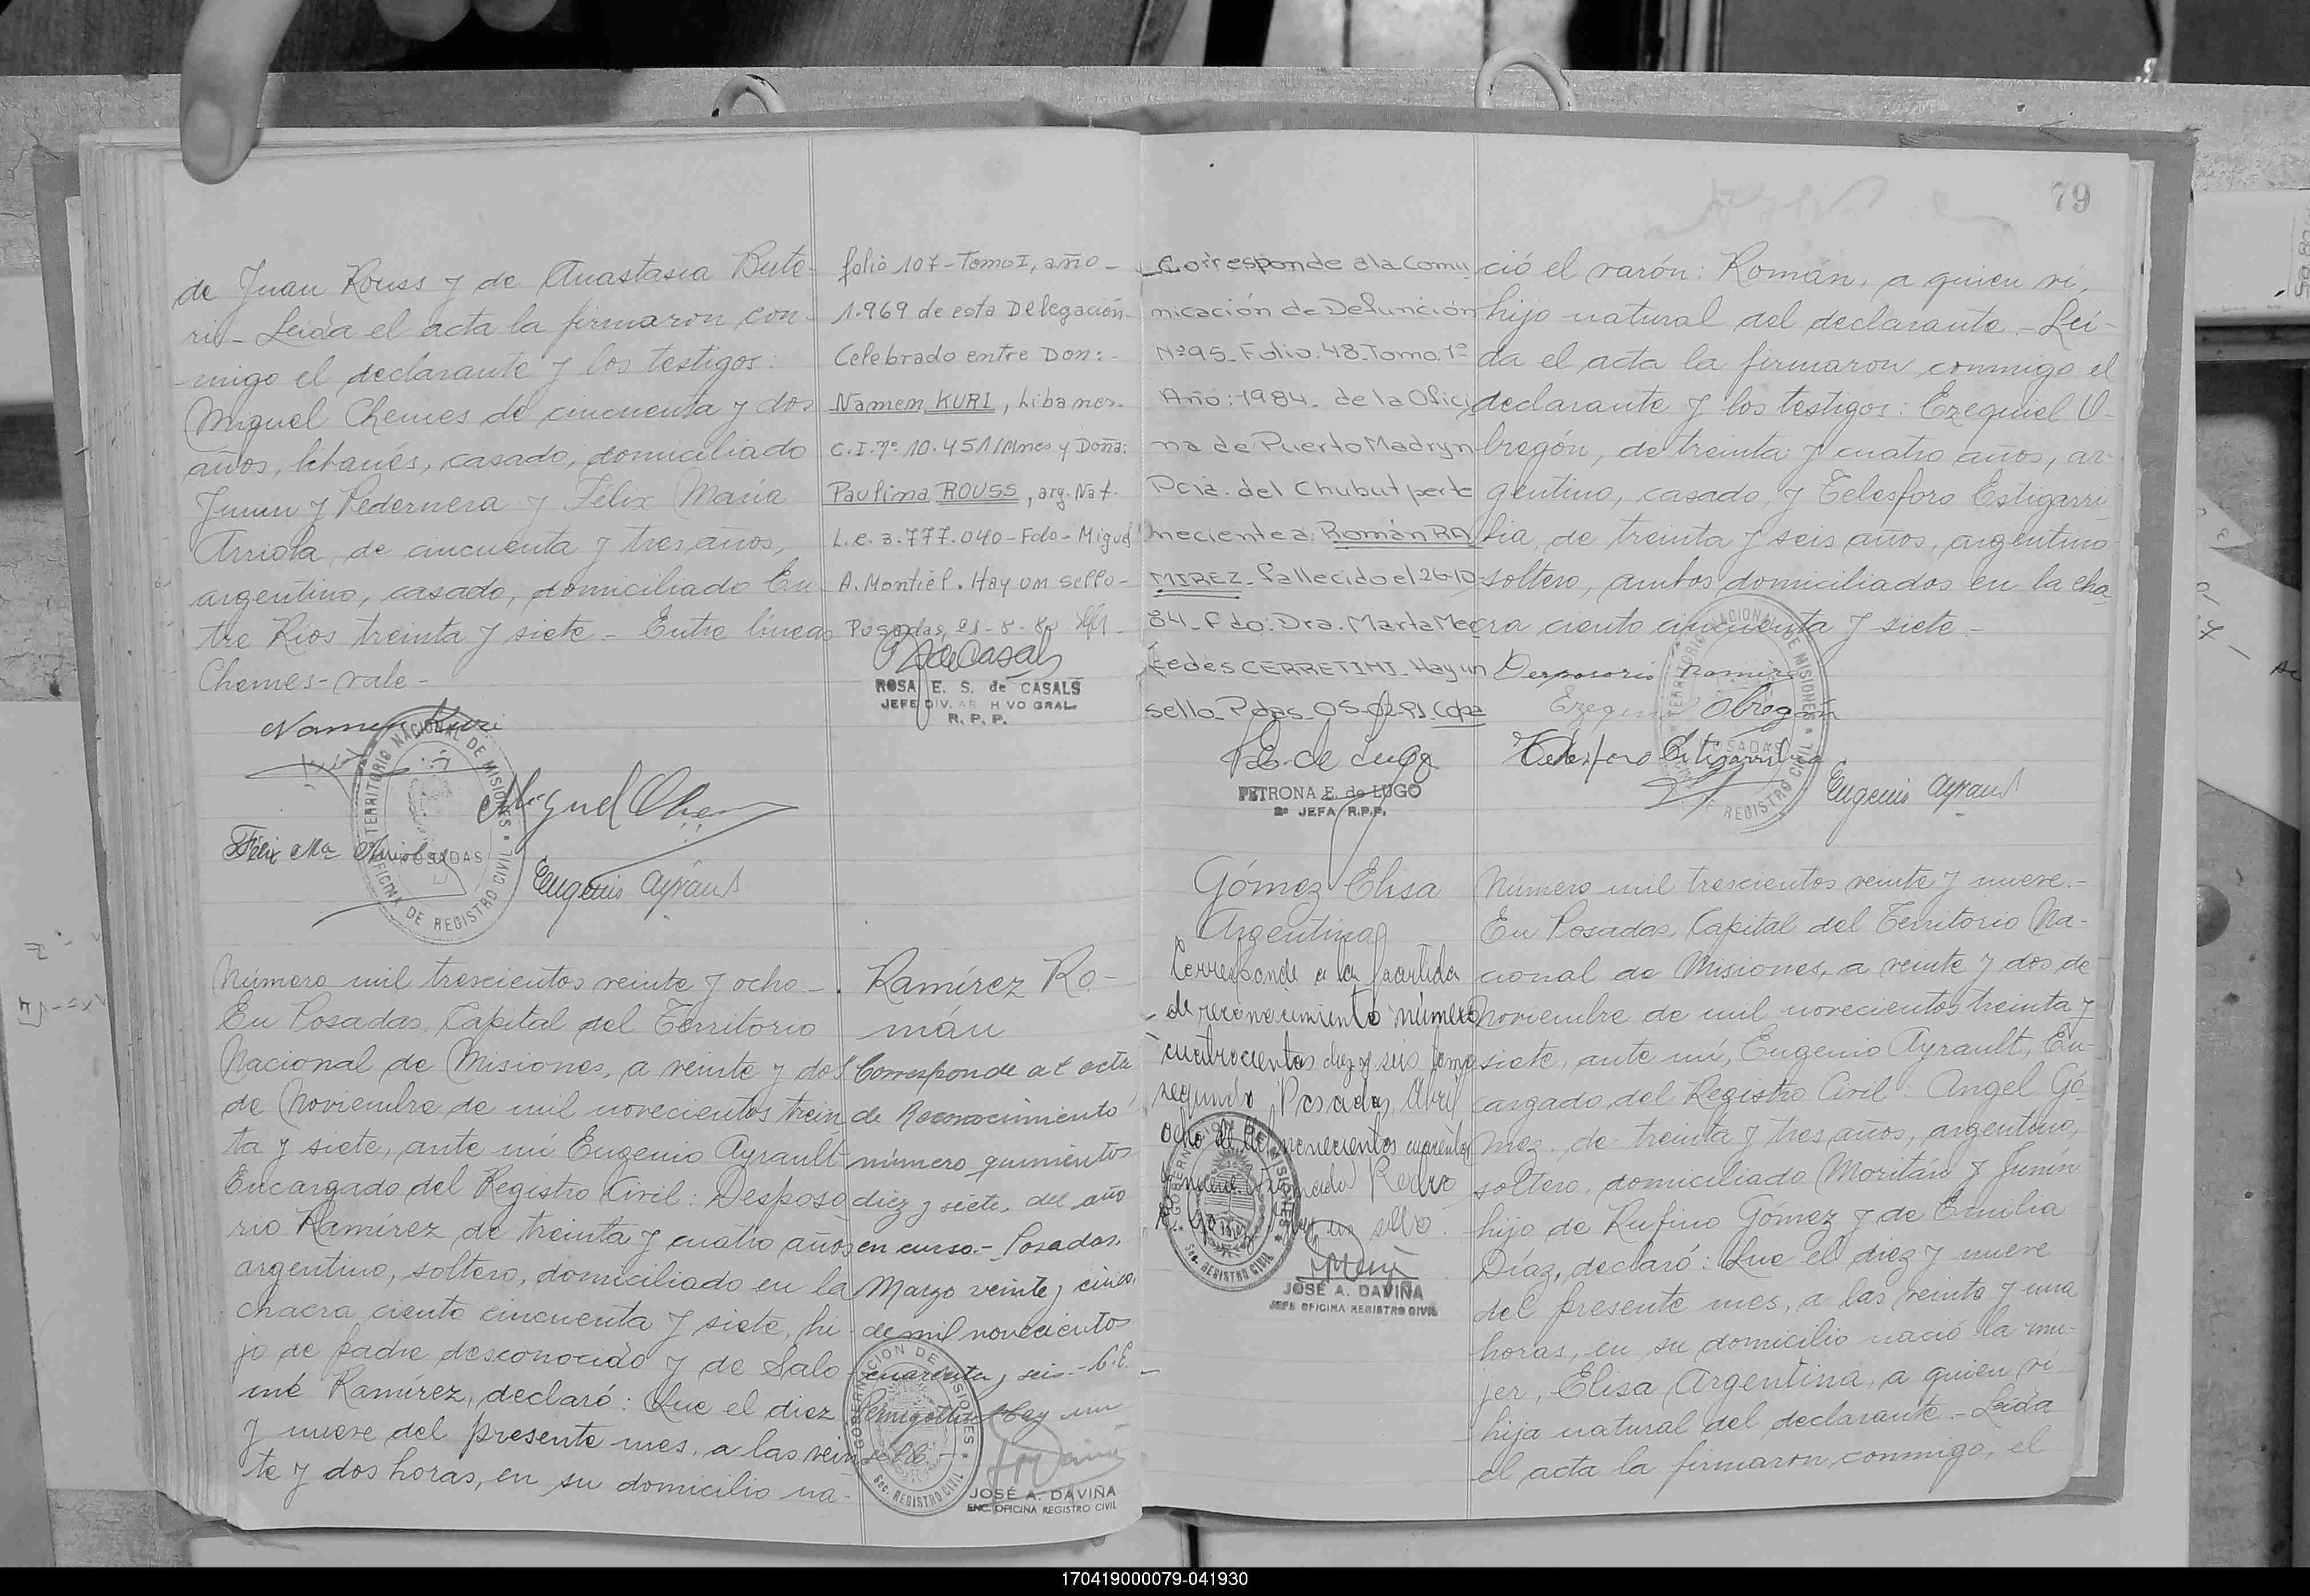 de Juan Rouss y de Anastasia Bute-
ri - Leída el acta la firmaron con-
migo el declarante y los testigos:
Miguel Chemes de cincuenta y dos
años, libanés, casado, domiciliado
Junin y Pedernera y Félix María
Arriola, de cincuenta y tres años,
argentino, casado, domiciliado En-
tre Ríos treinta y siete - Entre lineas
Chemes - vale -
Namen Kuri
Miguel Chemes
Félix Ma Arriola
Eugenio Ayrault
TERRITORIO NACIONAL DE MISIONES
POSADAS
OFICINA DE REGISTRO CIVIL
folio 107 - Tomo I, año -
1.969 de esta Delegación -
Celebrado entre Don: -
Namen KURI, Libanes.
C.I. Nº 10.451/Mnes y Doña:
Paulina ROUSS, arg. Nat.
L.C. 3.777.040 - Fdo - Miguel
A. Montiel. Hay un sello -
Posadas, 21-8-80
ROSA E. S. de CASALS
JEFE DIV. ARCHIVO GRAL.
R. P. P.
Número mil trescientos veinte y ocho -
En Posadas, Capital del Territorio
Nacional de Misiones, a veinte y dos
de Noviembre de mil novecientos trein
ta y siete, ante mí Eugenio Ayrault
Encargado del Registro Civil: Desposo
rio Ramírez de treinta y cuatro años
argentino, soltero, domiciliado en la
chacra ciento cincuenta y siete, hi-
jo de padre desconocido y de Salo-
mé Ramírez, declaró: Que el diez
y nueve del presente mes, a las vein
te y dos horas, en su domicilio na-
Ramírez Ro-
mán
Corresponde al acta
de Reconocimiento
número quinientos
diez y siete, del año
en curso. - Posadas,
Marzo veinte y cinco,
de mil novecientos
cuarenta y seis. - C.E.
Pernigotti Hay un
sello -
GOBERNACION DE MISIONES
Sec. REGISTRO CIVIL
JOSÉ A. DAVIÑA
ENC. OFICINA REGISTRO CIVIL
79
Corresponde a la Comu
nicación de Defunción
Nº 95 - Folio: 48 - Tomo: 1º
Año: 1984 - de la Ofici
na de Puerto Madryn
Pcia. del Chubut perte
neciente a: Román RA
MIREZ - fallecido el 26-10-
84 - Fdo: Dra. Marta Mer
cedes CERRETINI - Hay un
sello - Pdas - 05-02-91
P.E. de Lugo
PETRONA E. de LUGO
2º JEFA R.P.P.
ció el varón: Román, a quien ví,
hijo natural del declarante - Leí-
da el acta la firmaron conmigo el
declarante y los testigos: Ezequiel O-
bregón, de treinta y cuatro años, ar-
gentino, casado, y Telesforo Estigarri
bia, de treinta y seis años, argentino
soltero, ambos domiciliados en la cha
cra ciento cincuenta y siete -
Desposorio Ramirez
Ezequiel Obregón
Telesforo Estigarribia
Eugenio Ayrault
TERRITORIO NACIONAL DE MISIONES
POSADAS
REGISTRO CIVIL
Gómez Elisa
Argentina
Corresponde a la partida
de reconocimiento número
cuatrocientos diez y seis tomo
segundo Posadas, Abril
ocho de mil novecientos cuarenta
Hay un sello.
GOBERNACION DE MISIONES
Sec. REGISTRO CIVIL
JOSÉ A. DAVIÑA
JEFE OFICINA REGISTRO CIVIL
Número mil trescientos veinte y nueve. -
En Posadas, Capital del Territorio Na-
cional de Misiones, a veinte y dos de
Noviembre de mil novecientos treinta y
siete, ante mí, Eugenio Ayrault, En-
cargado del Registro Civil: Angel Gó
mez, de treinta y tres años, argentino,
soltero, domiciliado Moritán y Junín
hijo de Rufino Gómez y de Emilia
Díaz, declaró: Que el diez y nueve
del presente mes, a las veinte y una
horas, en su domicilio nació la mu-
jer, Elisa Argentina, a quien ví
hija natural del declarante - Leída
el acta la firmaron conmigo, el
170419000079-041930